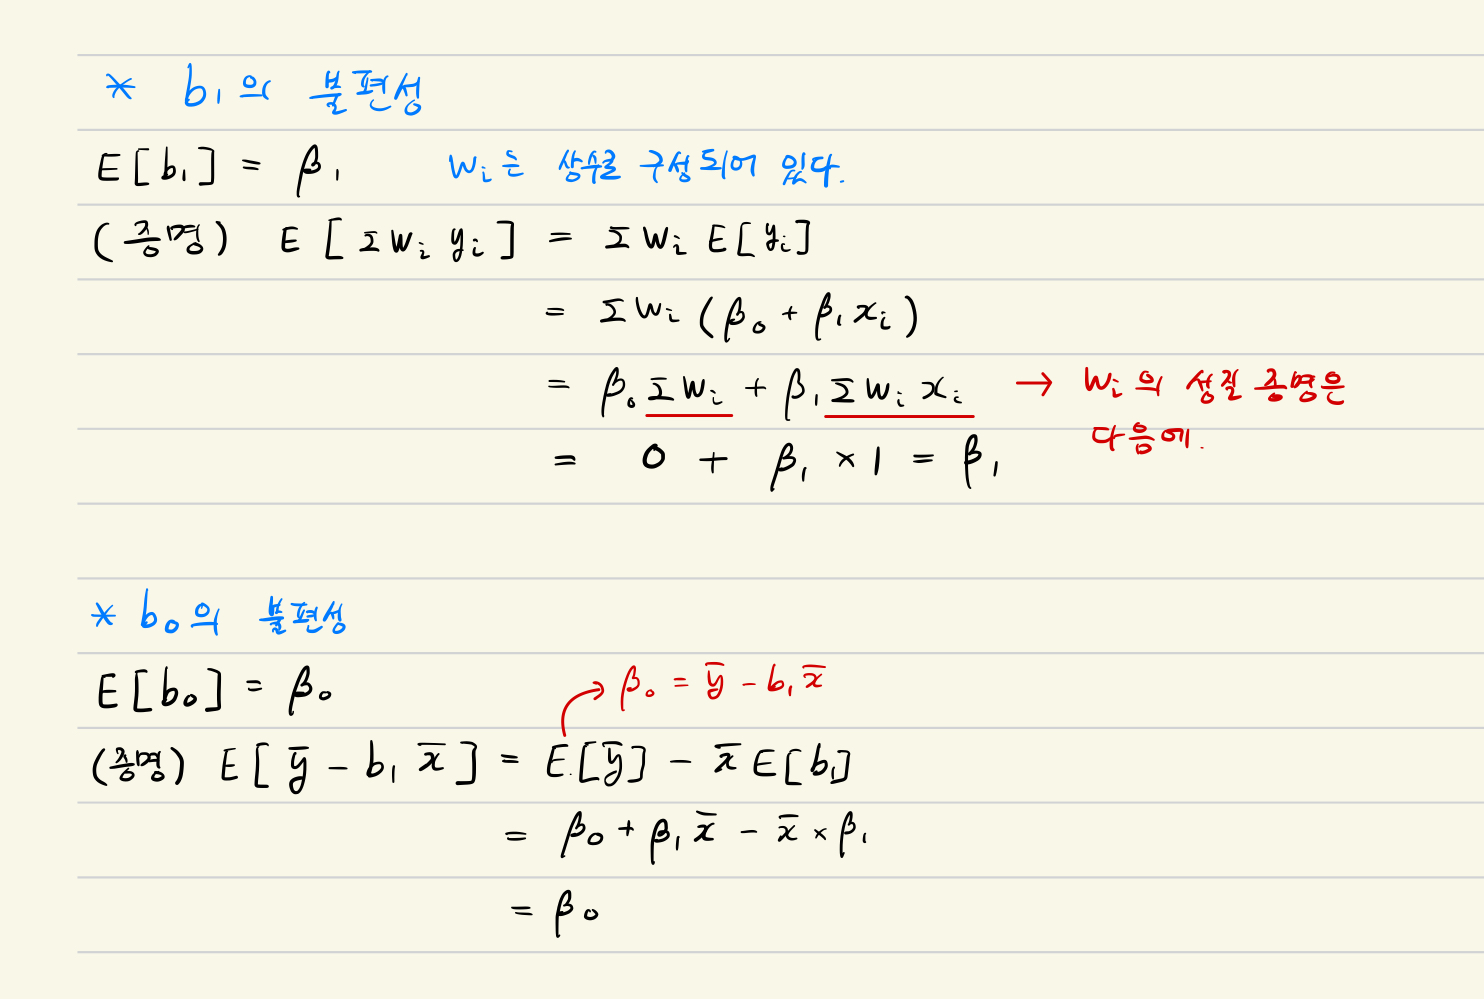 * b₁의 불편성
E[b₁] = β₁ wᵢ는 상수로 구성되어 있다.
(증명) E[Σwᵢyᵢ] = ΣwᵢE[yᵢ]
= Σwᵢ(β₀ + β₁xᵢ)
= β₀Σwᵢ + β₁Σwᵢxᵢ → wᵢ의 성질 증명은
다음에.
= 0 + β₁ × 1 = β₁
* b₀의 불편성
E[b₀] = β₀ β₀ = y̅ - b₁x̅
(증명) E[y̅ - b₁x̅] = E[y̅] - x̅E[b₁]
= β₀ + β₁x̅ - x̅ × β₁
= β₀